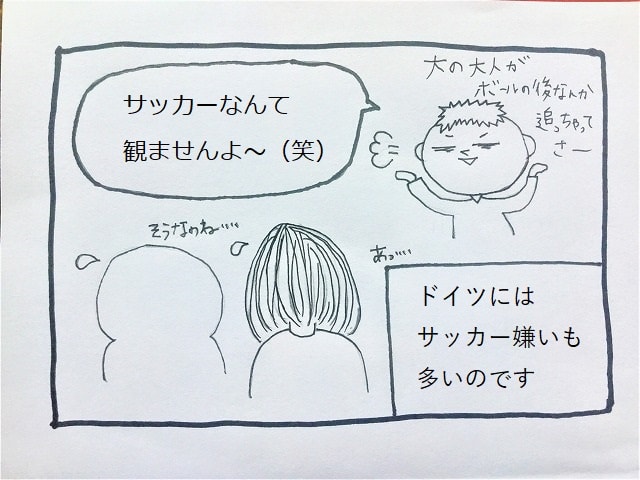 大の大人が
ボールの後なんか
追っちゃって
さー
サッカーなんて
観ませんよ～（笑）
そうなのね……
あっ……
ドイツには
サッカー嫌いも
多いのです